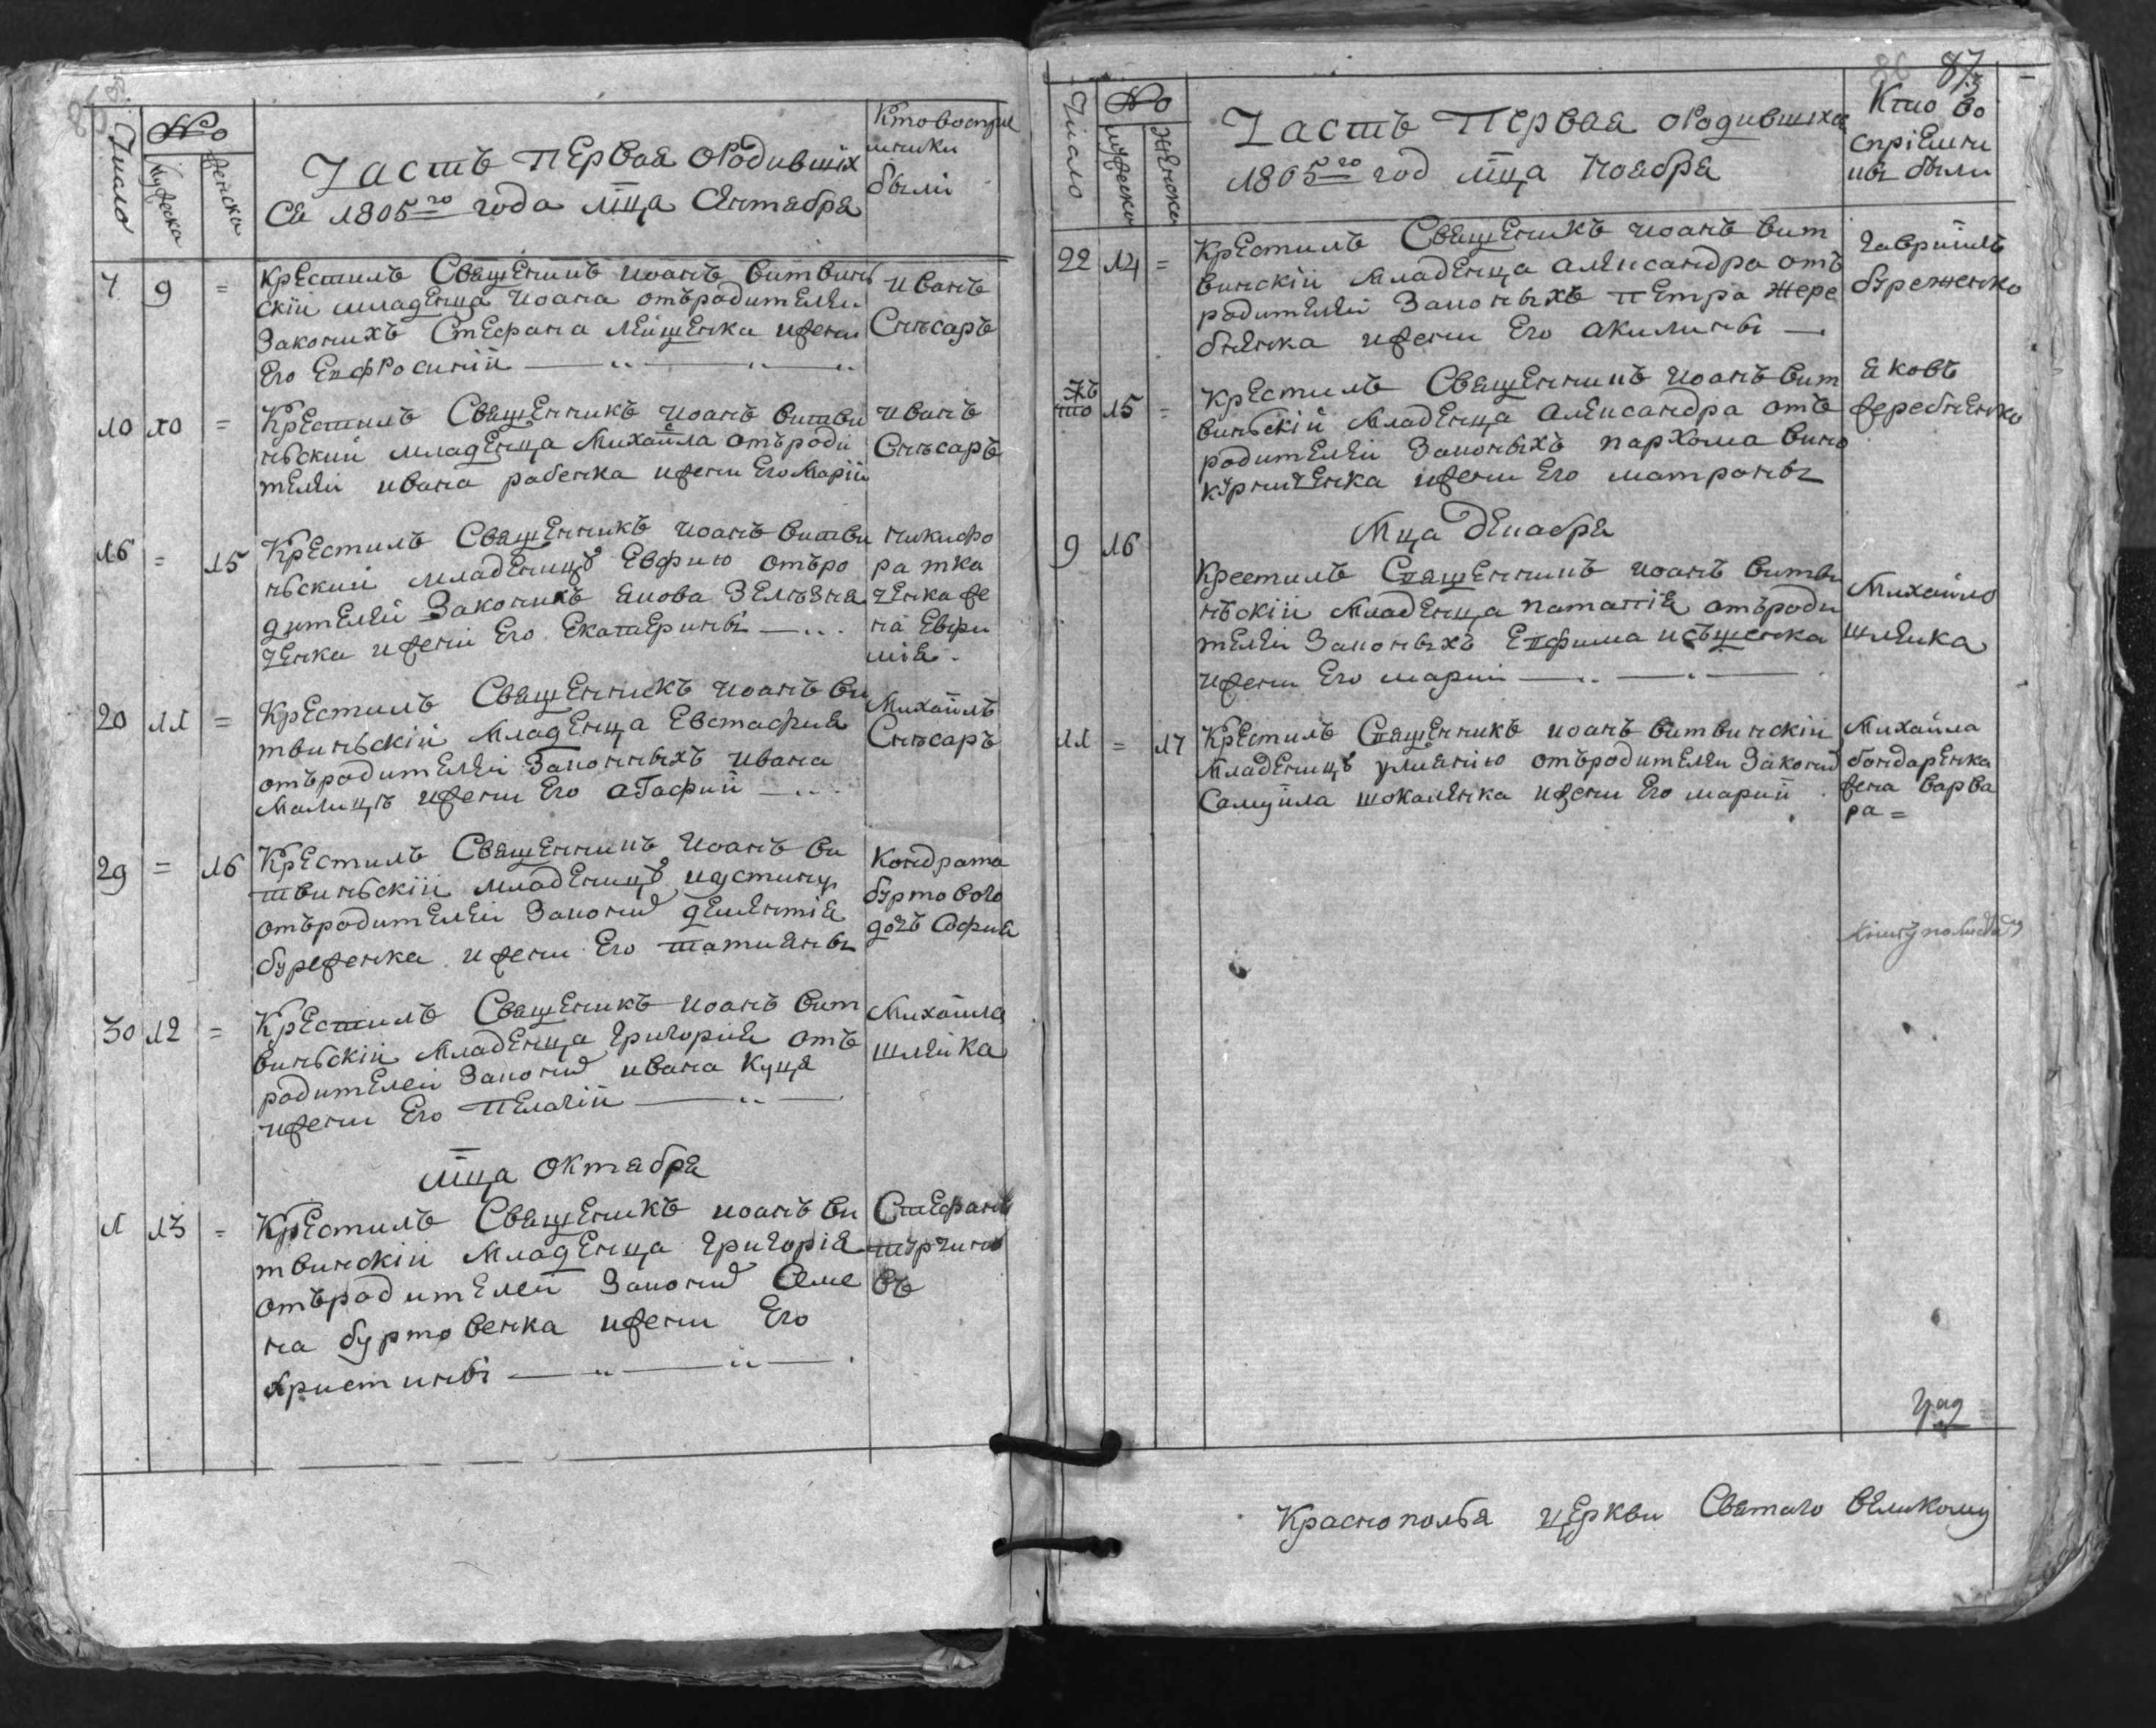 Число
№
мужеска
женска
Часть первая ородивших
ся 1805го года мца Сентября
Кто восприе
мники
были
7 9 =
Крестилъ Священикъ иоанъ витвинь
скій младенца иоана отъродителей
Законихъ Стефана Лейшенка ижени
Его Епфросиній
иванъ
Слѣсаръ
10 10 =
Крестилъ Священникъ иоанъ витви
ньский младенца Михаила отъроди
телей ивана рабенка ижени Его Маріи
иванъ
Слѣсаръ
16 = 15
Крестилъ Священникъ иоанъ витви
ньский младеницу Евфию отъро
дителей Законихъ якова Зелѣзня
ченка ижени Его Екатерины
никифо
ра тка
ченка же
на Евфи
міа
20 11 =
Крестилъ Священникъ иоанъ ви
твиньскій Младенца Евстафия
отъродителей Законныхъ ивана
Малицѣ ижени Его агафий
Михаилъ
Слѣсаръ
29 = 16
Крестилъ Священникъ иоанъ ви
твиньскій младеницу иустину
отъродителей Закони дементія
буреженка ижени Его татияны
Кондрата
буртового
дочъ Софиа
30 12 =
Крестилъ Священикъ иоанъ вит
виньскій Младенца григория отъ
родителей Закони ивана Куця
ижени Его пелагій
Михаила
шлейка
мца октября
1 13 =
Крестилъ Священикъ иоанъ ви
твинскій Младенца григорія
отъродителей Закони Семе
на буртовенка ижени Его
христины
Стефанъ
турчино
въ
87
Число
№
мужеска
женска
Часть Первая ородившихся
1805го год мца ноября
Кто во
спріемни
ны были
22 14 =
Крестилъ Священикъ иоанъ вит
винскій младенца александра отъ
родителей Законыхъ петра жере
бченка ижени Его акилины
гавриилъ
буреженко
тго 15 =
Крестилъ Священникъ иоанъ вит
виньскій младенца александра отъ
родителей Законыхъ пархома вино
курниченка ижени Его матроны
яковъ
жеребченко
Мца декабря
9 16
Крестилъ Священникъ иоанъ витви
нѣскій младенца патапія отъроди
телей Законыхъ Епфима
ижени Его марий
Михайло
шлейка
11 = 17
Крестилъ Священникъ иоанъ витвинскій
Младеницу улиянию отъродителей Закони
Самуила шокаленка ижени Его марий
Михаила
бондаренка
жена варва
ра =
Краснополья церкви Святаго великому